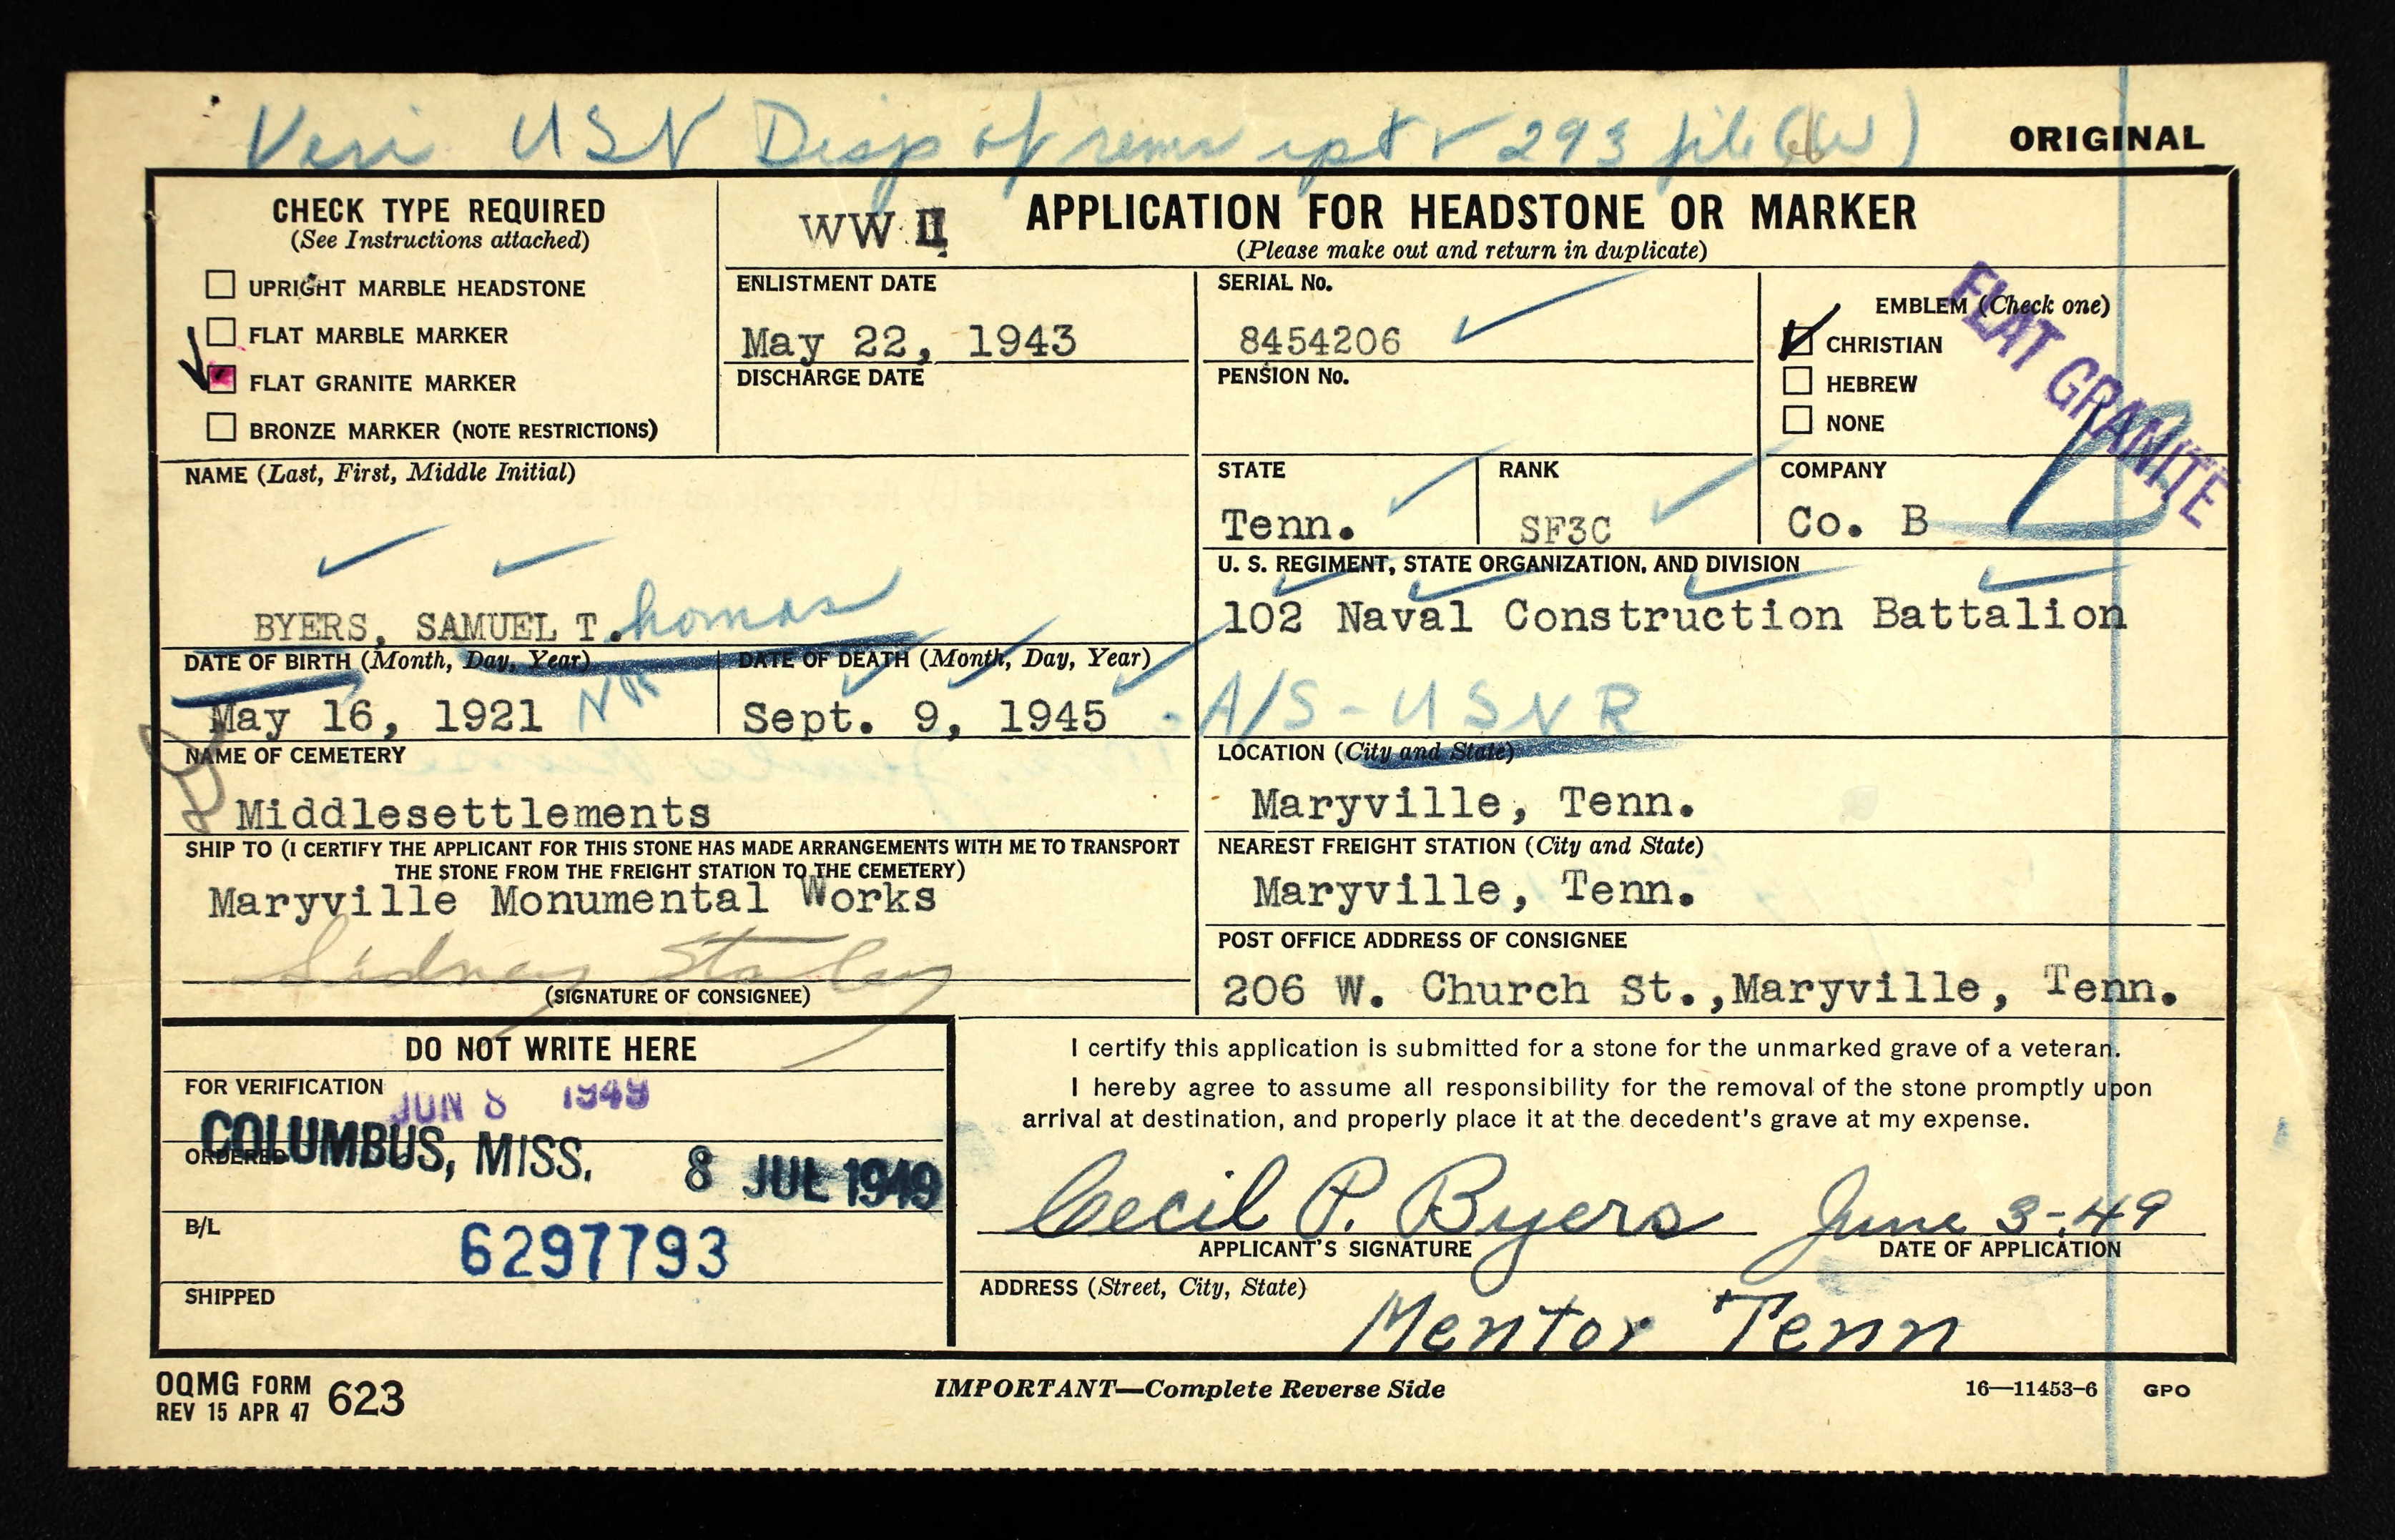 Veri USN Disp of rems rpt & 293 file (W)
ORIGINAL
CHECK TYPE REQUIRED
(See Instructions attached)
UPRIGHT MARBLE HEADSTONE
FLAT MARBLE MARKER
FLAT GRANITE MARKER
BRONZE MARKER (NOTE RESTRICTIONS)
WW II
APPLICATION FOR HEADSTONE OR MARKER
(Please make out and return in duplicate)
ENLISTMENT DATE
May 22, 1943
DISCHARGE DATE
SERIAL No.
8454206
PENSION No.
EMBLEM (Check one)
CHRISTIAN
HEBREW
NONE
FLAT GRANITE
NAME (Last, First, Middle Initial)
BYERS, SAMUEL T.homas
STATE
Tenn.
RANK
SF3C
COMPANY
Co. B
U. S. REGIMENT, STATE ORGANIZATION, AND DIVISION
102 Naval Construction Battalion
A/S - USNR
DATE OF BIRTH (Month, Day, Year)
May 16, 1921
NR
DATE OF DEATH (Month, Day, Year)
Sept. 9, 1945
NAME OF CEMETERY
Middlesettlements
LOCATION (City and State)
Maryville, Tenn.
SHIP TO (I CERTIFY THE APPLICANT FOR THIS STONE HAS MADE ARRANGEMENTS WITH ME TO TRANSPORT
THE STONE FROM THE FREIGHT STATION TO THE CEMETERY)
Maryville Monumental Works
Sidney Staley
(SIGNATURE OF CONSIGNEE)
NEAREST FREIGHT STATION (City and State)
Maryville, Tenn.
POST OFFICE ADDRESS OF CONSIGNEE
206 W. Church St.,Maryville, Tenn.
DO NOT WRITE HERE
FOR VERIFICATION
JUN 8 1949
ORDERED
COLUMBUS, MISS. 8 JUL 1949
B/L
6297793
SHIPPED
I certify this application is submitted for a stone for the unmarked grave of a veteran.
I hereby agree to assume all responsibility for the removal of the stone promptly upon
arrival at destination, and properly place it at the decedent's grave at my expense.
Cecil P. Byers June 3-49
APPLICANT'S SIGNATURE
DATE OF APPLICATION
ADDRESS (Street, City, State)
Mentor Tenn
OQMG FORM 623
REV 15 APR 47
IMPORTANT—Complete Reverse Side
16—11453-6 GPO